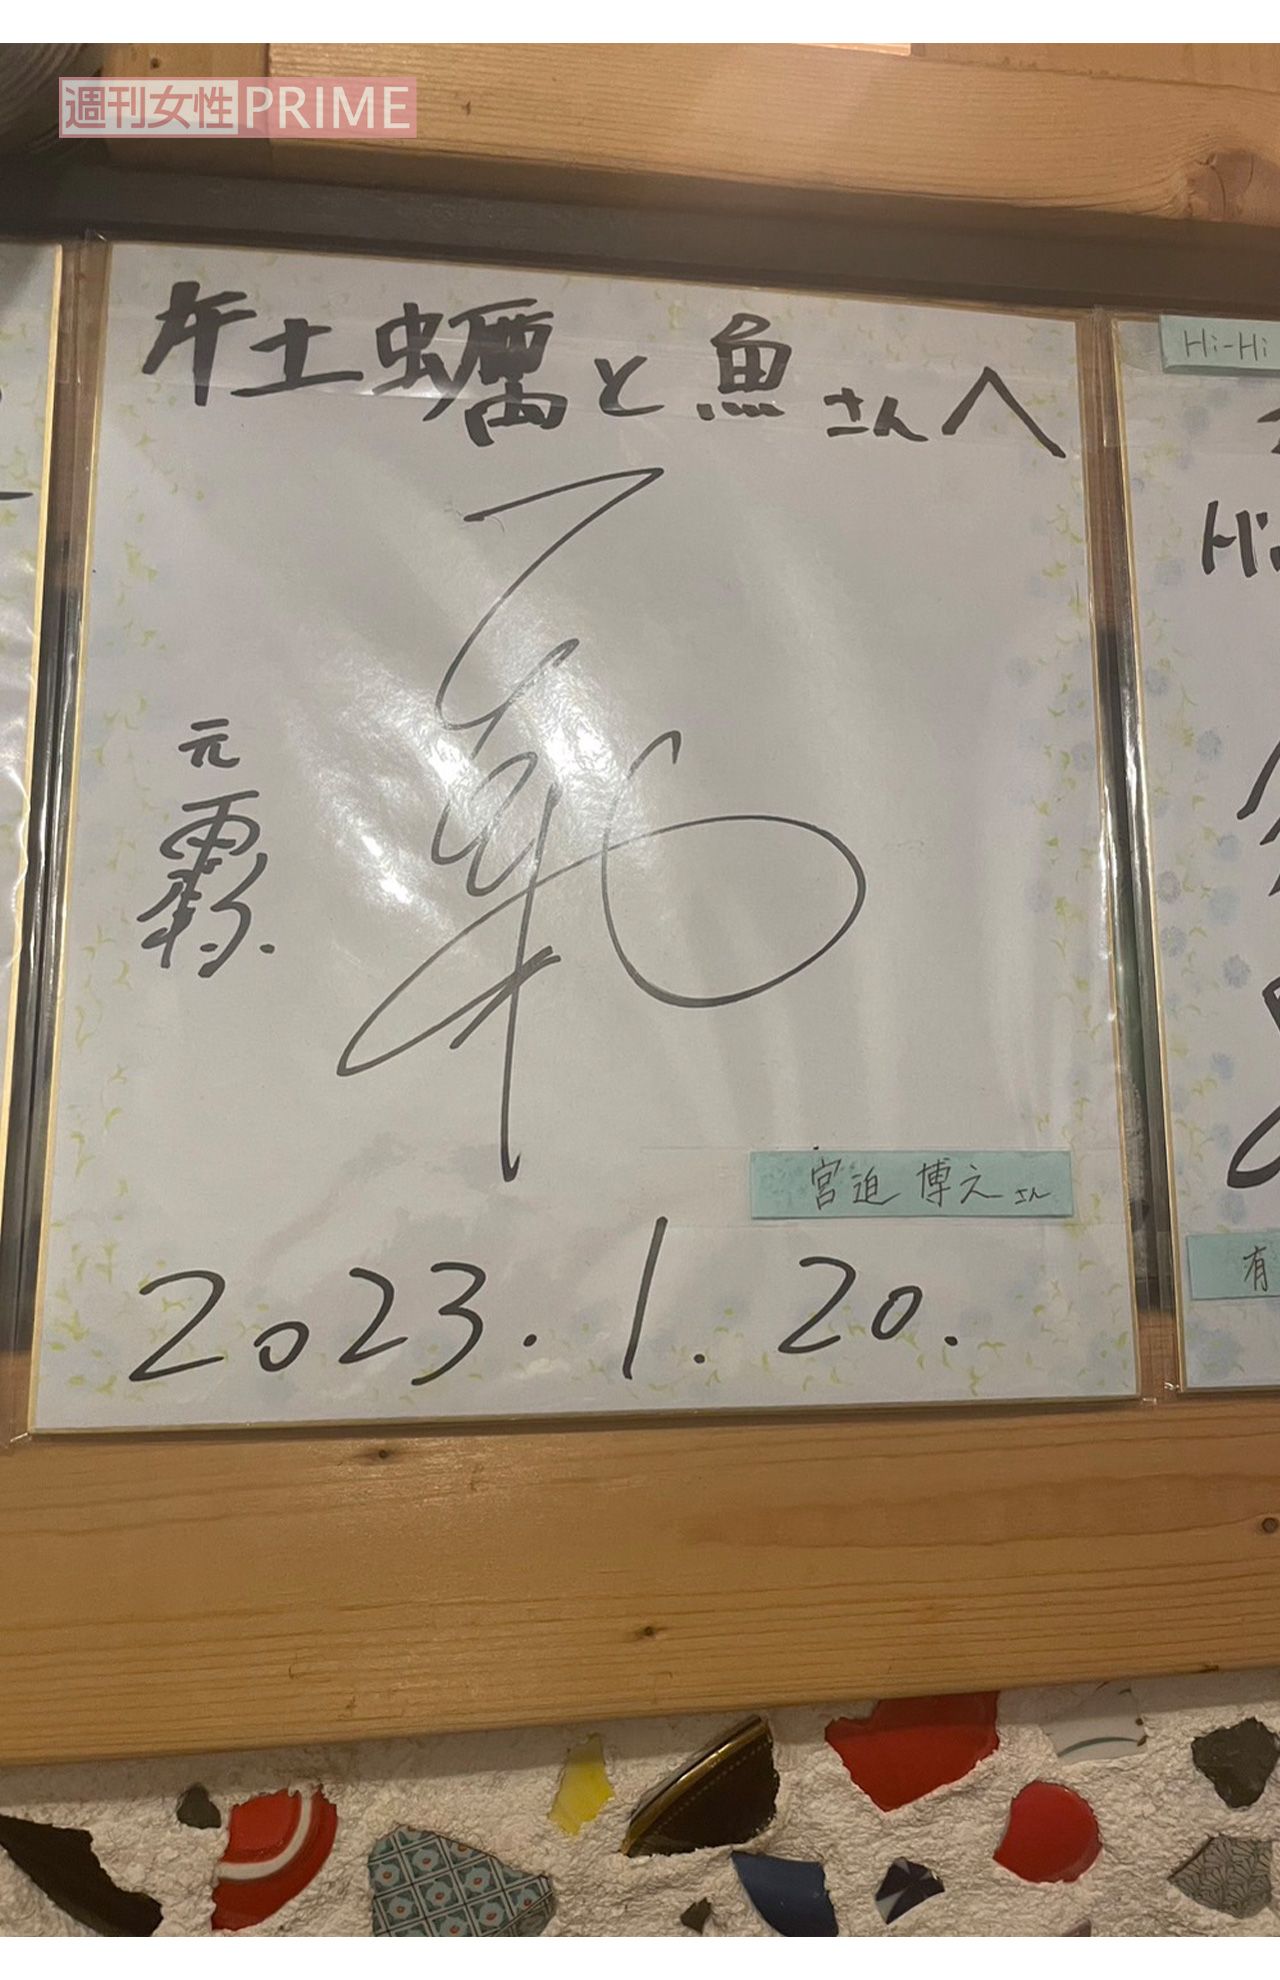 週刊女性PRIME
牡蠣と魚さんへ
元
宮迫 博之さん
2023.1.20.
Hi-Hi
有